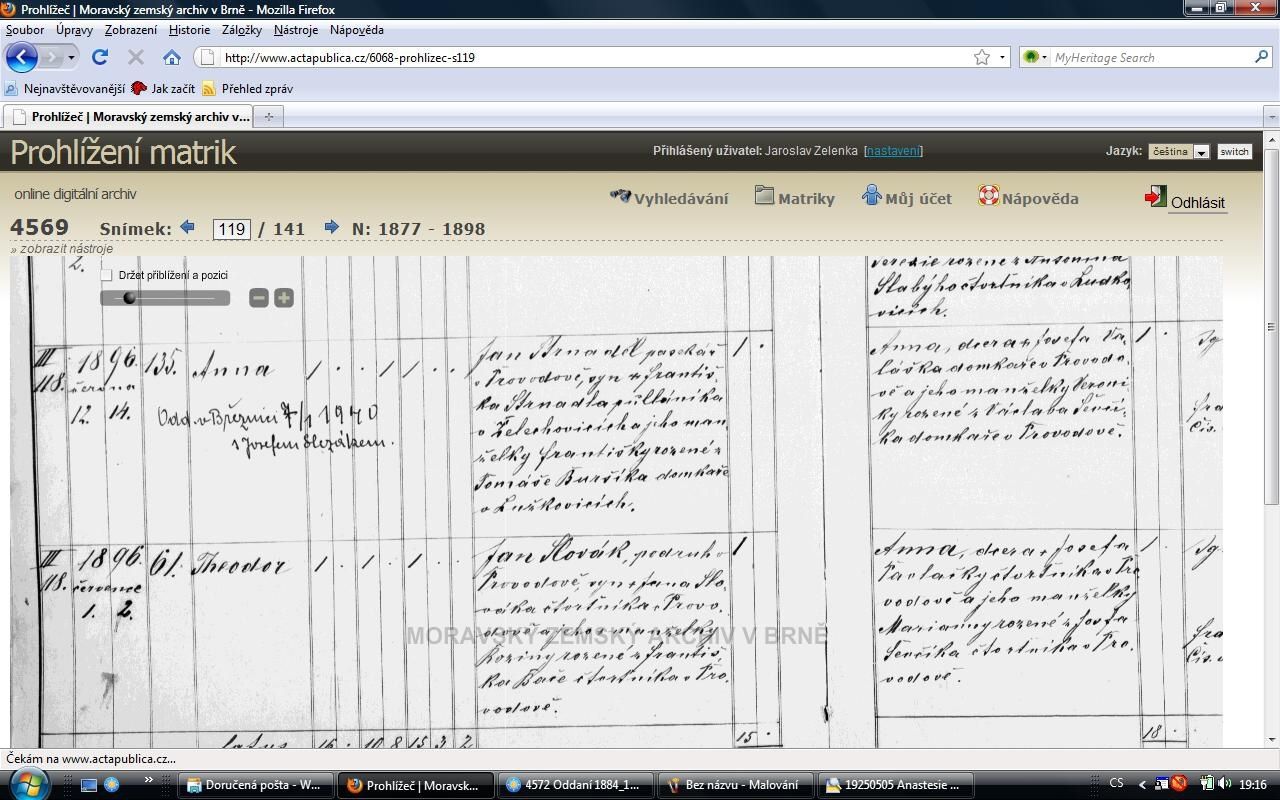 Prohlížeč | Moravský zemský archiv v Brně - Mozilla Firefox
Soubor Úpravy Zobrazení Historie Záložky Nástroje Nápověda
http://www.actapublica.cz/6068-prohlizec-s119
MyHeritage Search
Nejnavštěvovanější Jak začít Přehled zpráv
Prohlížeč | Moravský zemský archiv v...
Prohlížení matrik
Přihlášený uživatel: Jaroslav Zelenka [nastavení]
Jazyk: čeština switch
online digitální archiv
Vyhledávání Matriky Můj účet Nápověda Odhlásit
4569 Snímek: 119 / 141 N: 1877 - 1898
» zobrazit nástroje
2.
Držet přiblížení a pozici
rozené z Antonína
Slabýho čtvrtníka v Ludko,
vicích.
III 1896. 135. Anna 1 . . 1 1 . .
118. června
12. 14.
Odd. v Březnici 7/1 1940
s Josefem Slezákem.
Jan Strnadel pasekář
v Provodově, syn + Františ,
ka Strnadla půlláníka
v Želechovicích a jeho man,
želky Františky rozené z
Tomáše Buršíka domkaře
v Lužkovicích.
1 .
Anna, dcera + Josefa Va,
láška domkaře v Provodo,
vě a jeho manželky Veroni,
ky rozené z Václava Ševčí,
ka domkaře v Provodově.
1 .
III 1896. 61. Theodor 1 . 1 . 1 . .
118. července
1. 2.
Jan Slovák, podruh v
Provodově, syn + Jana Slo,
váka čtvrtníka v Provo,
dově a jeho manželky
Roziny rozené z Františ,
ka Bače čtvrtníka v Pro,
vodově.
1
Anna, dcera + Josefa
Pavlačky čtvrtníka v Pro,
vodově a jeho manželky
Marianny rozené z Josefa
Ševčíka čtvrtníka v Pro,
vodově.
1 .
MORAVSKÝ ZEMSKÝ ARCHIV V BRNĚ
latus 15 . 18 .
Čekám na www.actapublica.cz...
Doručená pošta - W...
Prohlížeč | Moravsk...
4572 Oddaní 1884_1...
Bez názvu - Malování
19250505 Anastesie ...
CS 19:16